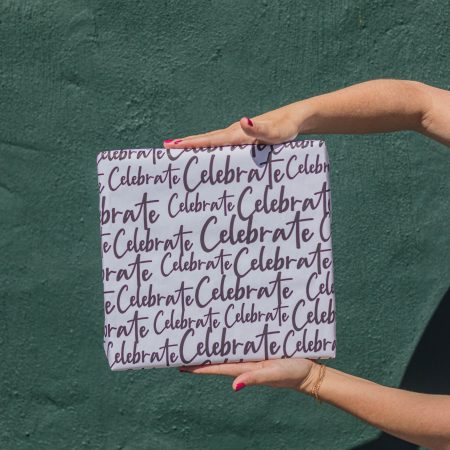 Celebrate
Celebrate Celebrate Celebrate
Celebrate Celebrate Celebrate
Celebrate Celebrate Celebrate
Celebrate Celebrate Celebrate
Celebrate Celebrate Celebrate
Celebrate Celebrate Celebrate Celebrate
Celebrate Celebrate Celebrate